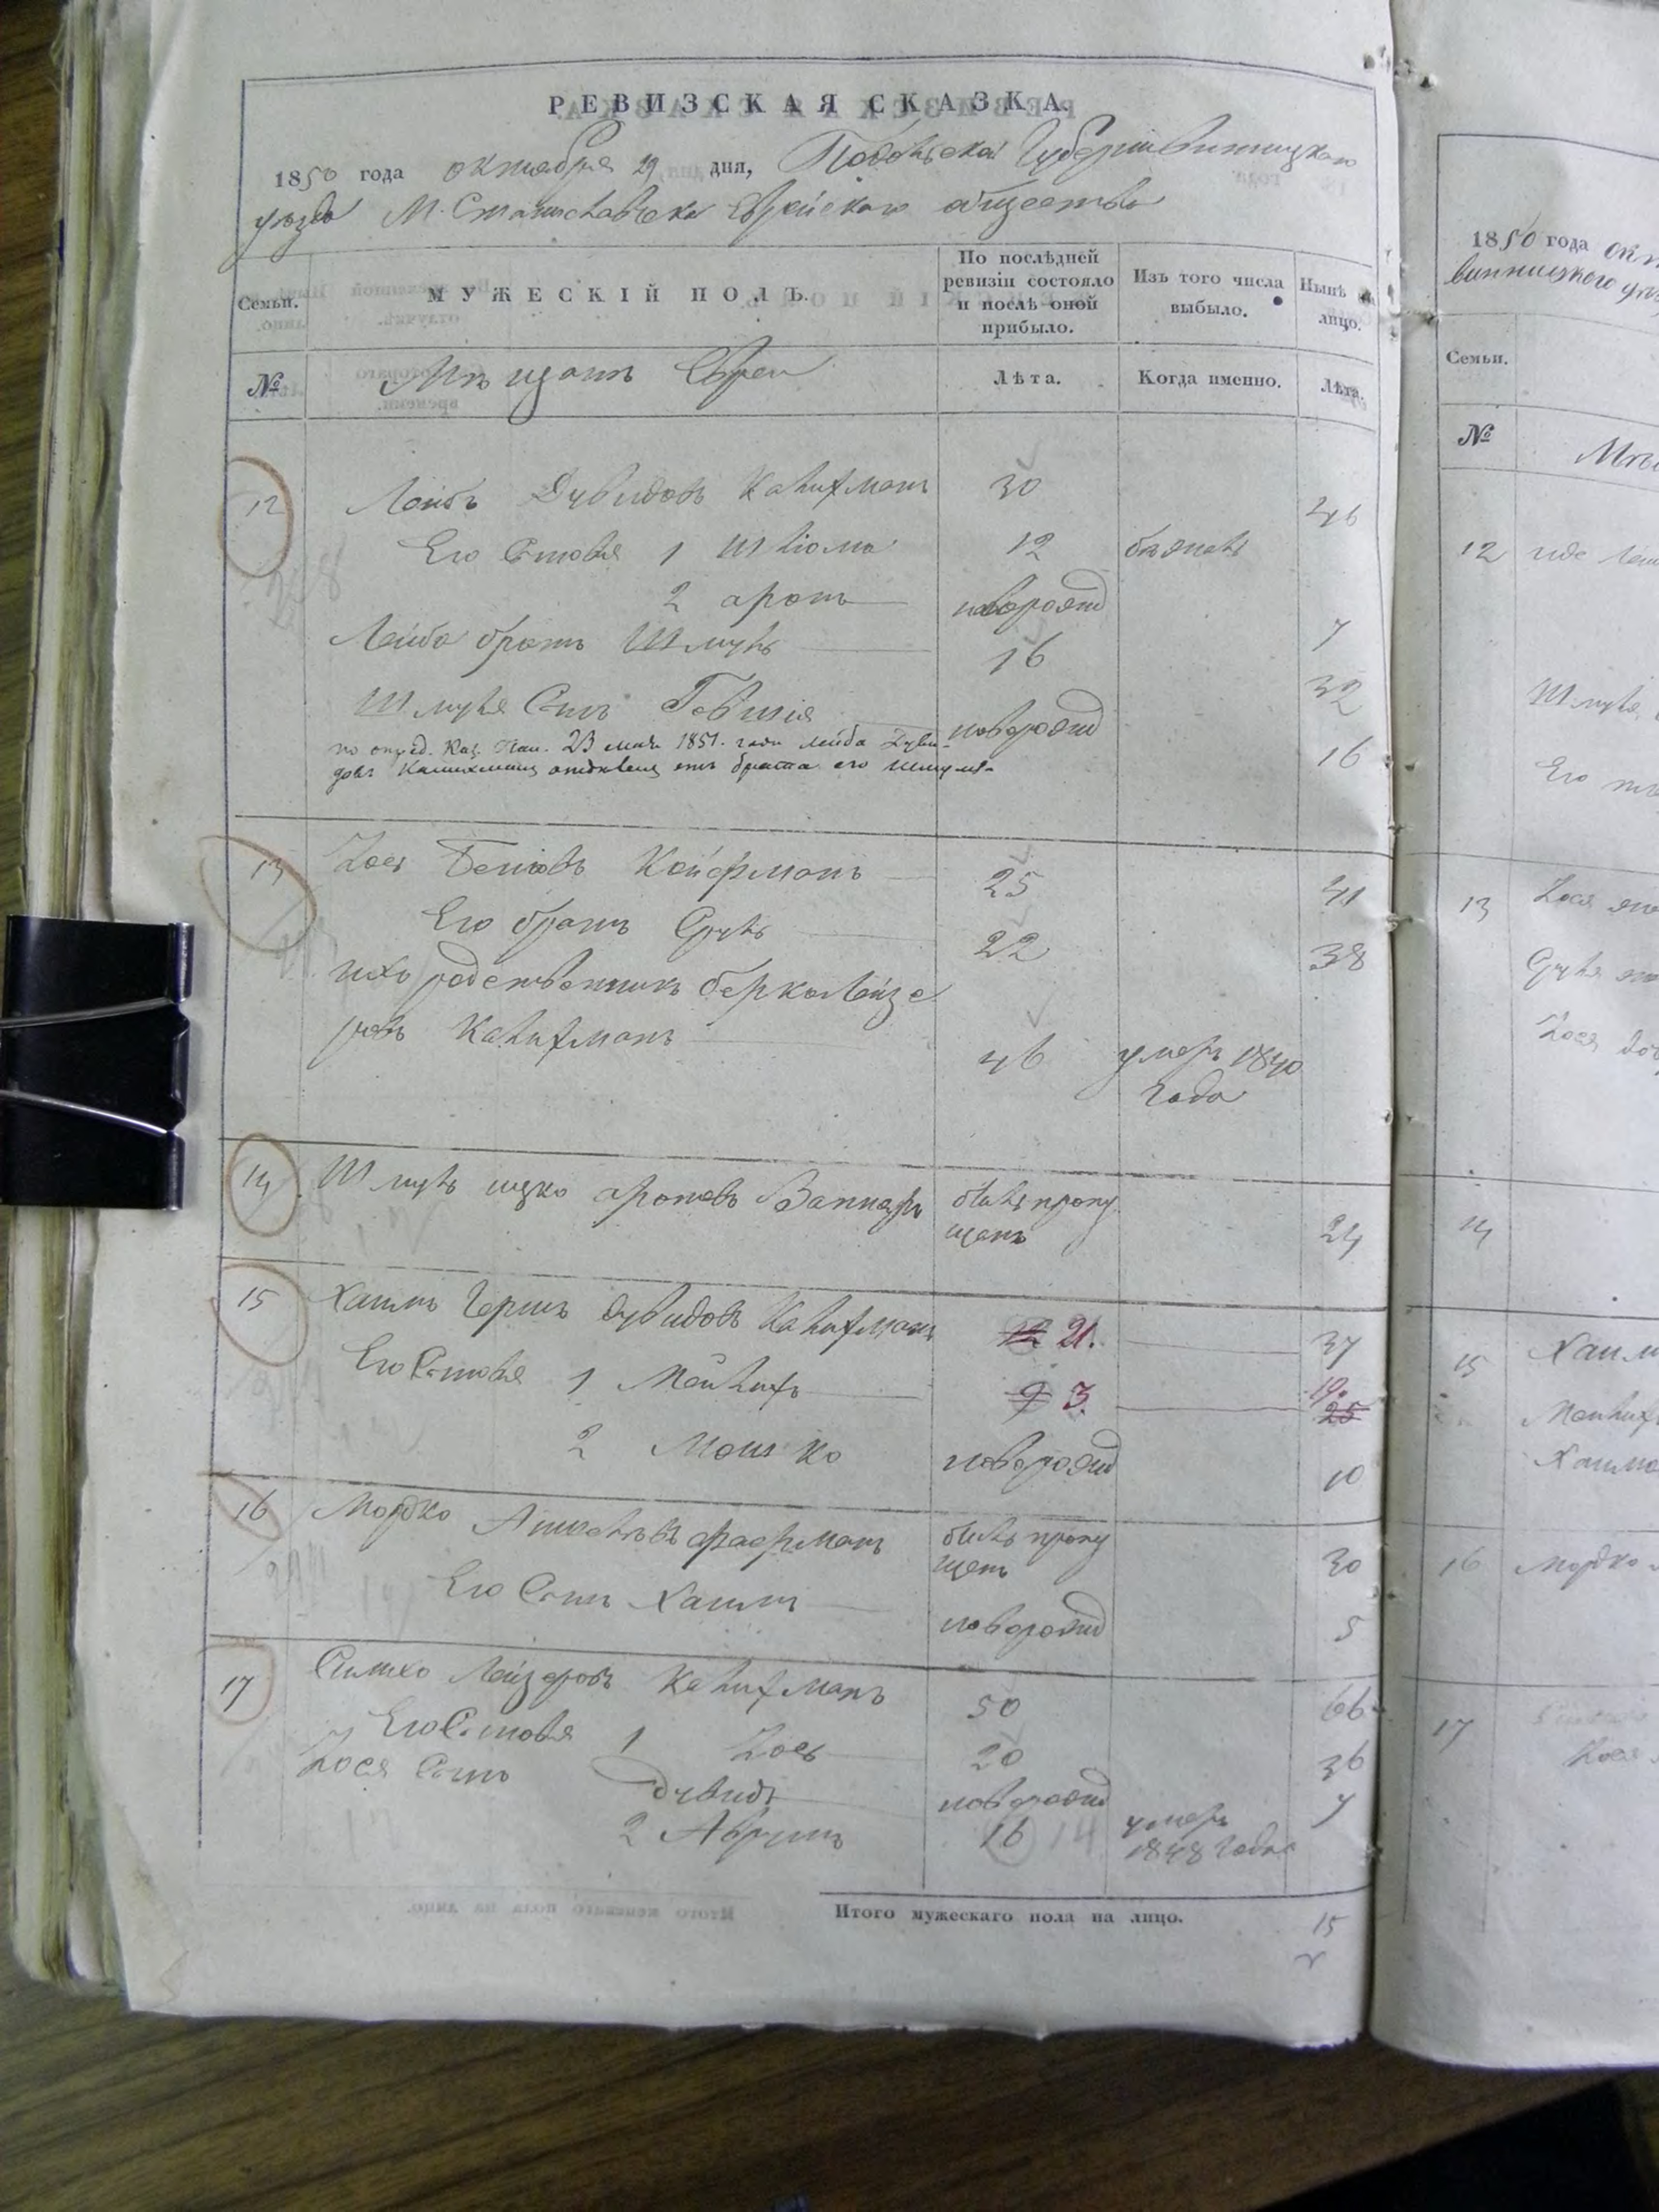 РЕВИЗСКАЯ СКАЗКА.
1850 года октября 29 дня, Подольской Губернии Винницкаго
уезда М. Станиславчека Еврейскаго общества
Семьи.
МУЖЕСКІЙ ПОЛЪ.
По послѣдней ревизіи состояло и послѣ оной прибыло.
Изъ того числа выбыло.
Нынѣ на лицо.
№ Мѣщанъ Евреи Лѣта. Когда именно. Лѣта.
12 Лейбъ Дувидовъ Калихманъ 30 46
Его Сыновья 1 Шлома 12 бѣжалъ
2 аронъ новорожд 7
Лейба братъ Шмуль 16 32
Шмуля Сынъ Говшія новорожд 16
по опред. Каз. Пал. 23 мая 1851. года Лейба Дуви-
довъ Калихманъ отдѣленъ отъ брата его Шмуля
13 Зось Беніовъ Койфманъ 25 41
Его братъ Сруль 22 38
ихъ родственникъ берко Лейзе
ровъ Калихманъ 46 умеръ 1840
года
14 Шмуль ицко ароновъ Вапняръ былъ пропу
щенъ 24
15 Хаимъ Гершъ дувидовъ Калихманъ 12 21. 37
Его Сыновья 1 Мейлихъ 9 3. 19. 25
2 Мошко новорожд 10
16 Мордко файфманъ былъ пропу
щенъ 30
Его Сынъ Хаимъ новорожд 5
17 Симхо Лейзеровъ Калихманъ 50 66
Его Сыновья 1 Зось 20 36
Зося Сынъ дувидъ новорожд 7
2 Аврумъ 16 14 умеръ
1848 года
Итого мужескаго пола на лицо. 15
1850 года
винницкого
Семьи.
№
12
Шмуля
Его
13 Зося
Сруля
Зося
14
15 Хаим
Мейлих
Хаима
16 Мордко
17
Зося